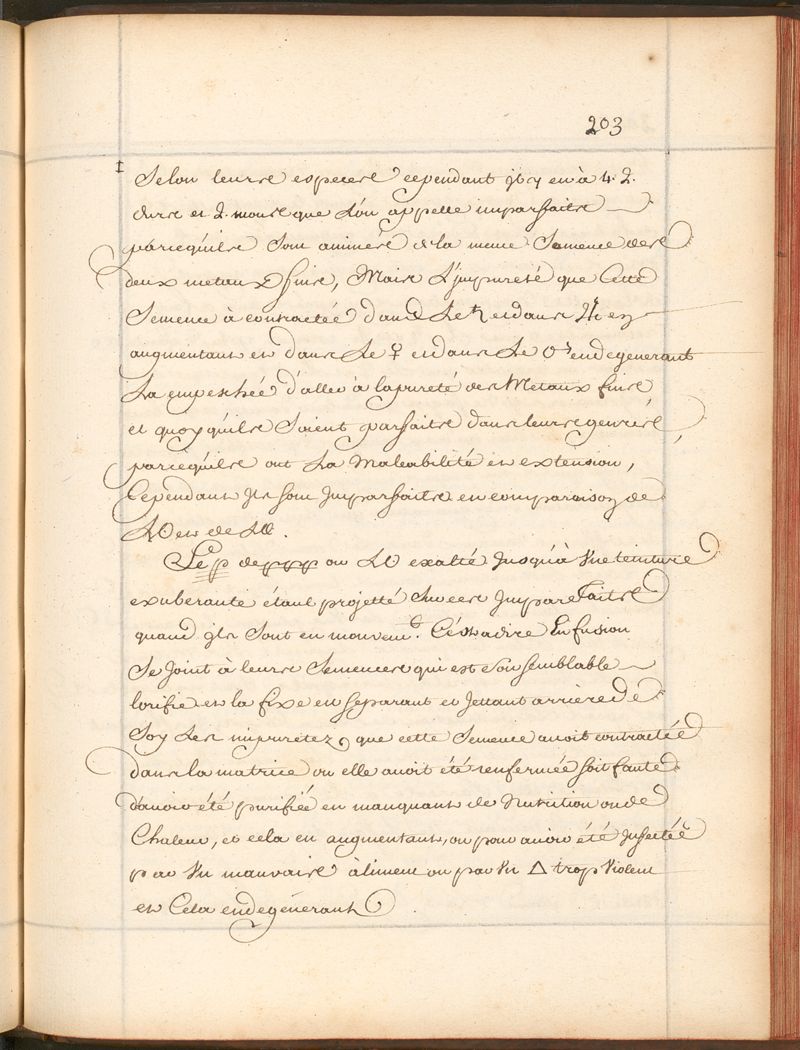 203
Selon leurs especes cependant il y en à 4. 2.
durs et 2. mous que L'on appelle imparfaits
parcequ'ils sont animés de la meme Semence des
deux metaux fins, Mais L'impureté que Cette
Semence à contractée dans Le ♄ et dans ♃ en
augmentant et dans Le ♀ et dans Le ♂ en degenerant
La empeschée d'aller à la pureté des Metaux fins
et quoyqu'ils soient parfaits dans leurs genres,
parcequ'ils ont La Maleabilité et extension,
Cependant ils sont Imparfaits en comparaison de
L'O et de
Le de ou exalté Jusqu'à Vne teinture
exuberante étant projetté Sur ces Imparfaits
quand ils Sont en mouvemt. C'est a dire En fusion
Se Joint à leurs Semences qui est Son semblable
lorifie et la fixe en separant et Jettant arriere de
Soy Les impuretez, que cette Semence auoit contractée
dans la matrice ou elle auoit été renfermée soit faute
d'auoir été purifiée en manquant de Nutrition ou de
Chaleur, et cela en augmentant, ou pour auoir été Infectée
par Vn mauvais àliment ou par Vn △ trop Violent
et Cela en degénérant